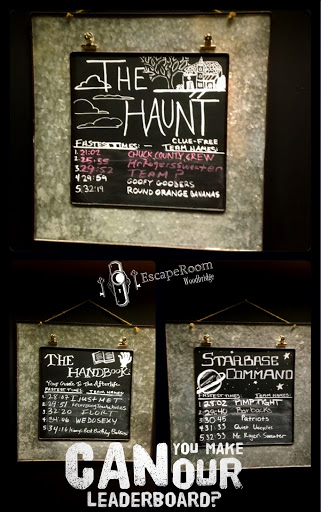 THE
HAUNT
FASTEST TIMES: - CLUE-FREE TEAM NAMES:
1. 21:02 CHUCK COUNTY CREW
2. 25:55 MrRogerssweater
3. 29:52 TEAM P
4. 29:59 GOOFY GOOBERS
5. 32:19 ROUND ORANGE BANANAS
EscapeRoom
Woodbridge
THE
HANDBOOK:
Your Guide To The Afterlife
FASTEST TIMES TEAM NAMES:
1. 28:07 I JUST ME T
2. 29:51
3. 32:20
4. 34:46 WEDOSEXY
5. 34:16
STARBASE
COMMAND
FASTEST TIMES TEAM NAMES:
1. 28:02 PIMP TIGHT
2. 29:40
3. 30:45 Patriots
4. 31:33 Quiet
5. 32:33 Mr. Rogers Sweater
CAN YOU MAKE
OUR
LEADERBOARD?